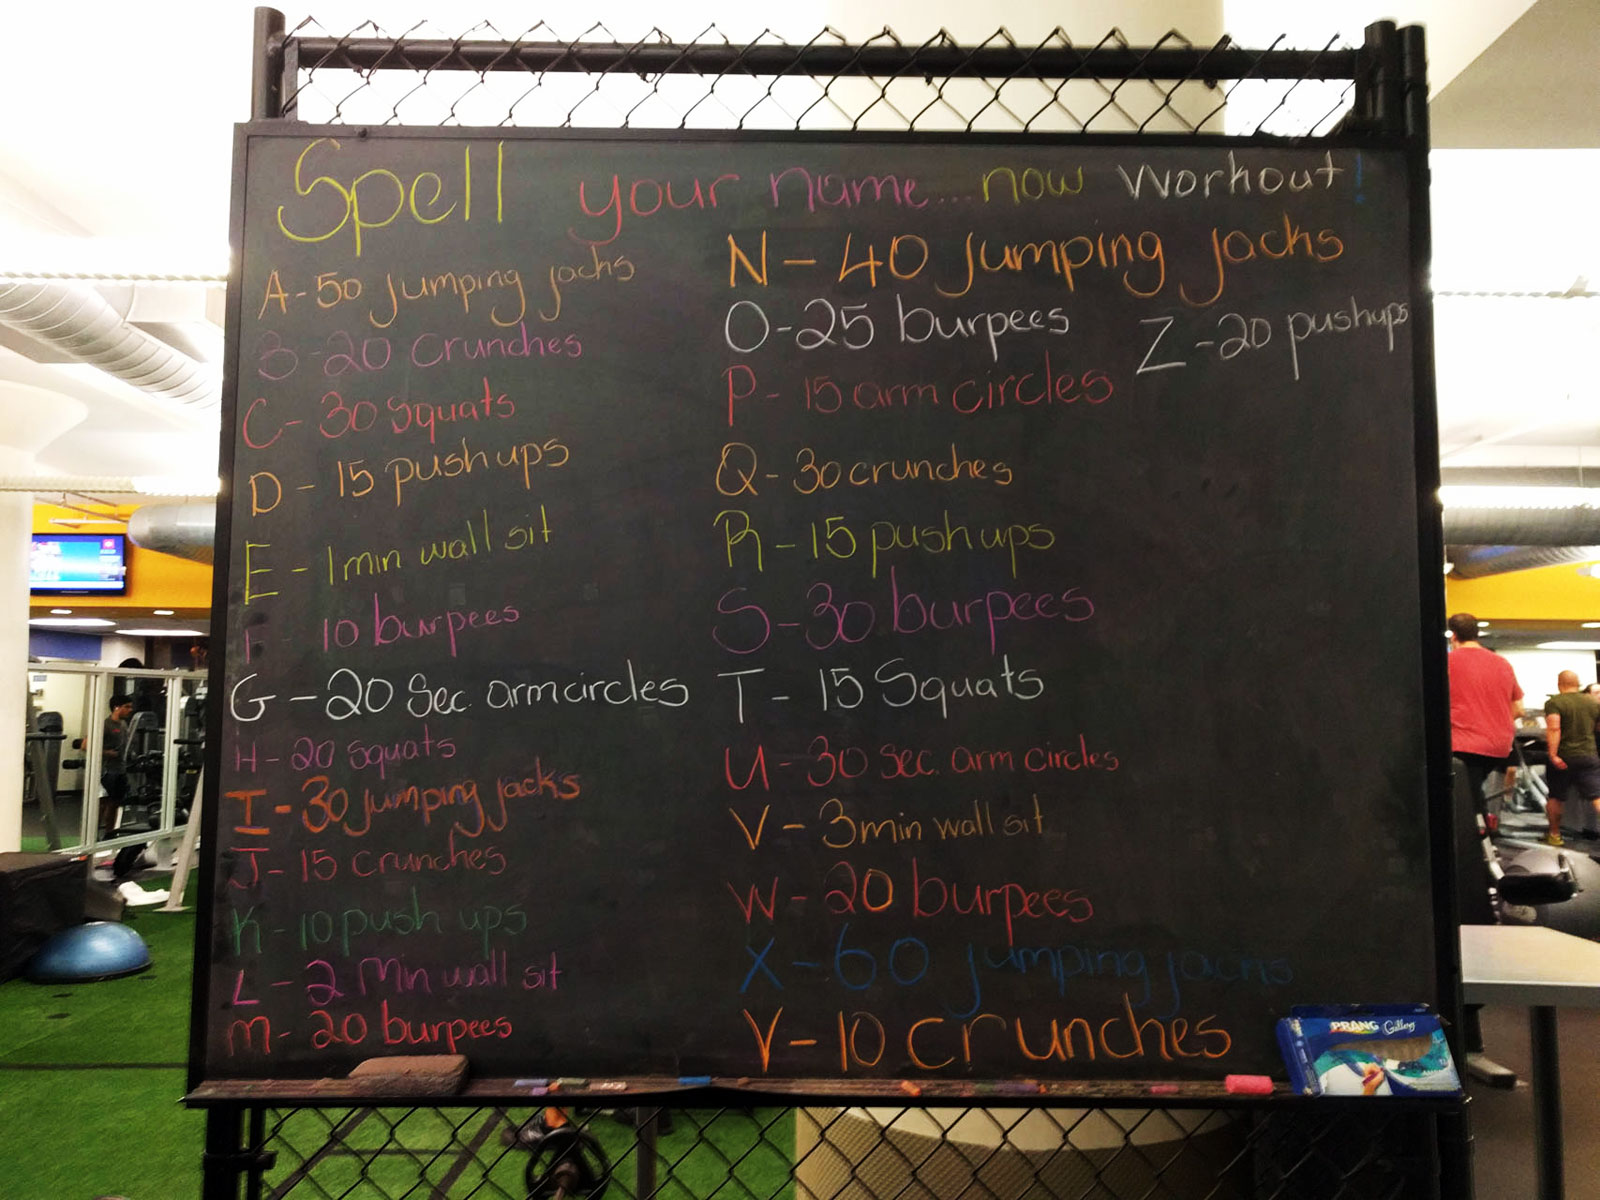 Spell your name...now Workout!
A-50 jumping jacks
B-20 Crunches
C-30 Squats
D-15 pushups
E-1min wall sit
F-10 burpees
G-20 Sec. armcircles
H-20 squats
I-30 jumping jacks
J-15 crunches
K-10 push ups
L-2 Min wall sit
M-20 burpees
N-40 jumping jacks
O-25 burpees
P-15 arm circles
Q-30 crunches
R-15 pushups
S-30 burpees
T-15 Squats
U-30 Sec. arm circles
V-3min wall sit
W-20 burpees
X-60 jumping jacks
Y-10 crunches
Z-20 pushups
PRANG